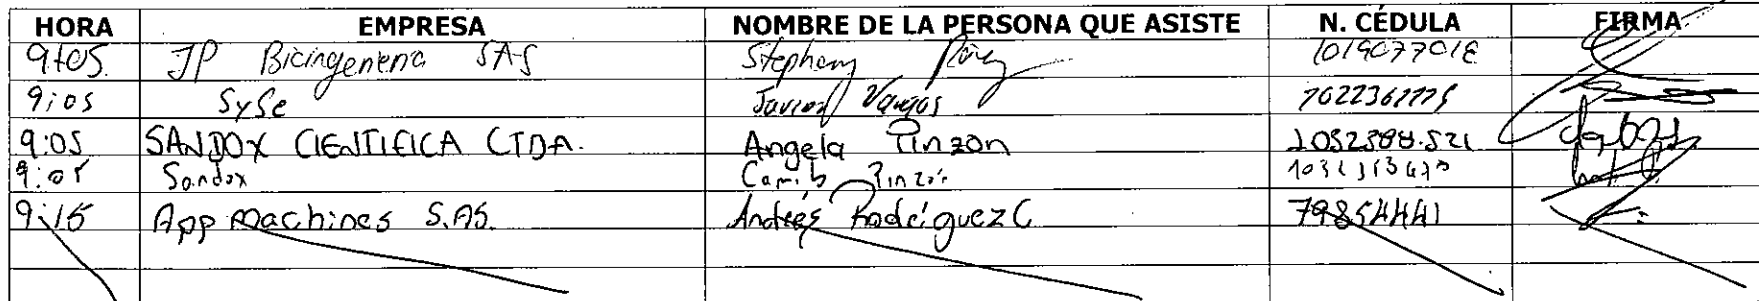 HORA EMPRESA NOMBRE DE LA PERSONA QUE ASISTE N. CÉDULA FIRMA
9:05 JP Bioingenieria SAS Stephany 1019077018
9:05 SySe Javier Vargas
9:05 SANDOX CIENTIFICA LTDA. Angela Pinzon
9:05 Sandox Camilo Pinzón
9:15 App Machines S.AS. Andrés Rodríguez C 79854441